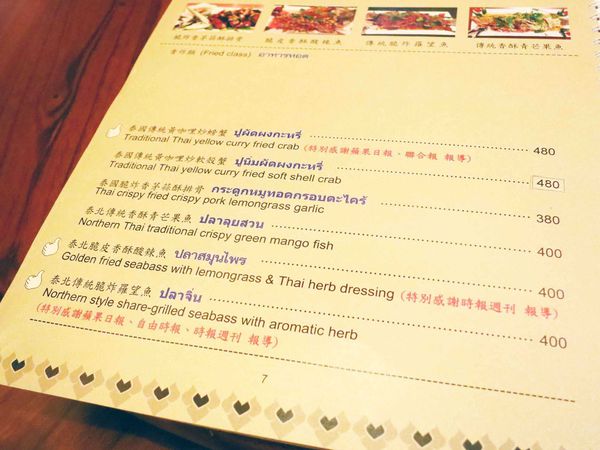 脆炸香茅蒜酥排骨 脆皮香酥酸辣魚 傳統脆炸羅望魚 傳統香酥青芒果魚
香炸類 (Fried class) อาหารทอด
泰國傳統黃咖哩炒螃蟹 ปูผัดผงกะหรี่ 480
Traditional Thai yellow curry fried crab (特別感謝蘋果日報、聯合報 報導)
泰國傳統黃咖哩炒軟殼蟹 ปูนิ่มผัดผงกะหรี่ 480
Traditional Thai yellow curry fried soft shell crab
泰國脆炸香茅蒜酥排骨 กระดูกหมูทอดกรอบตะไคร้ 380
Thai crispy fried crispy pork lemongrass garlic
泰北傳統香酥青芒果魚 ปลาลุยสวน 400
Northern Thai traditional crispy green mango fish
泰北脆皮香酥酸辣魚 ปลาสมุนไพร 400
Golden fried seabass with lemongrass & Thai herb dressing (特別感謝時報週刊 報導)
泰北傳統脆炸羅望魚 ปลาจิ่น 400
Northern style share-grilled seabass with aromatic herb
(特別感謝蘋果日報、自由時報、時報週刊 報導)
7